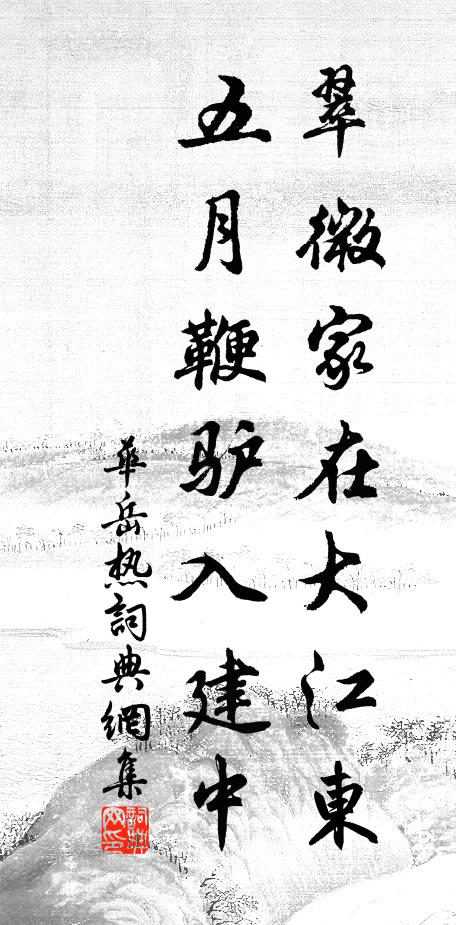 翠微家在大江東
五月鞭驴入建中
華岳热詞典網集
詞典網印